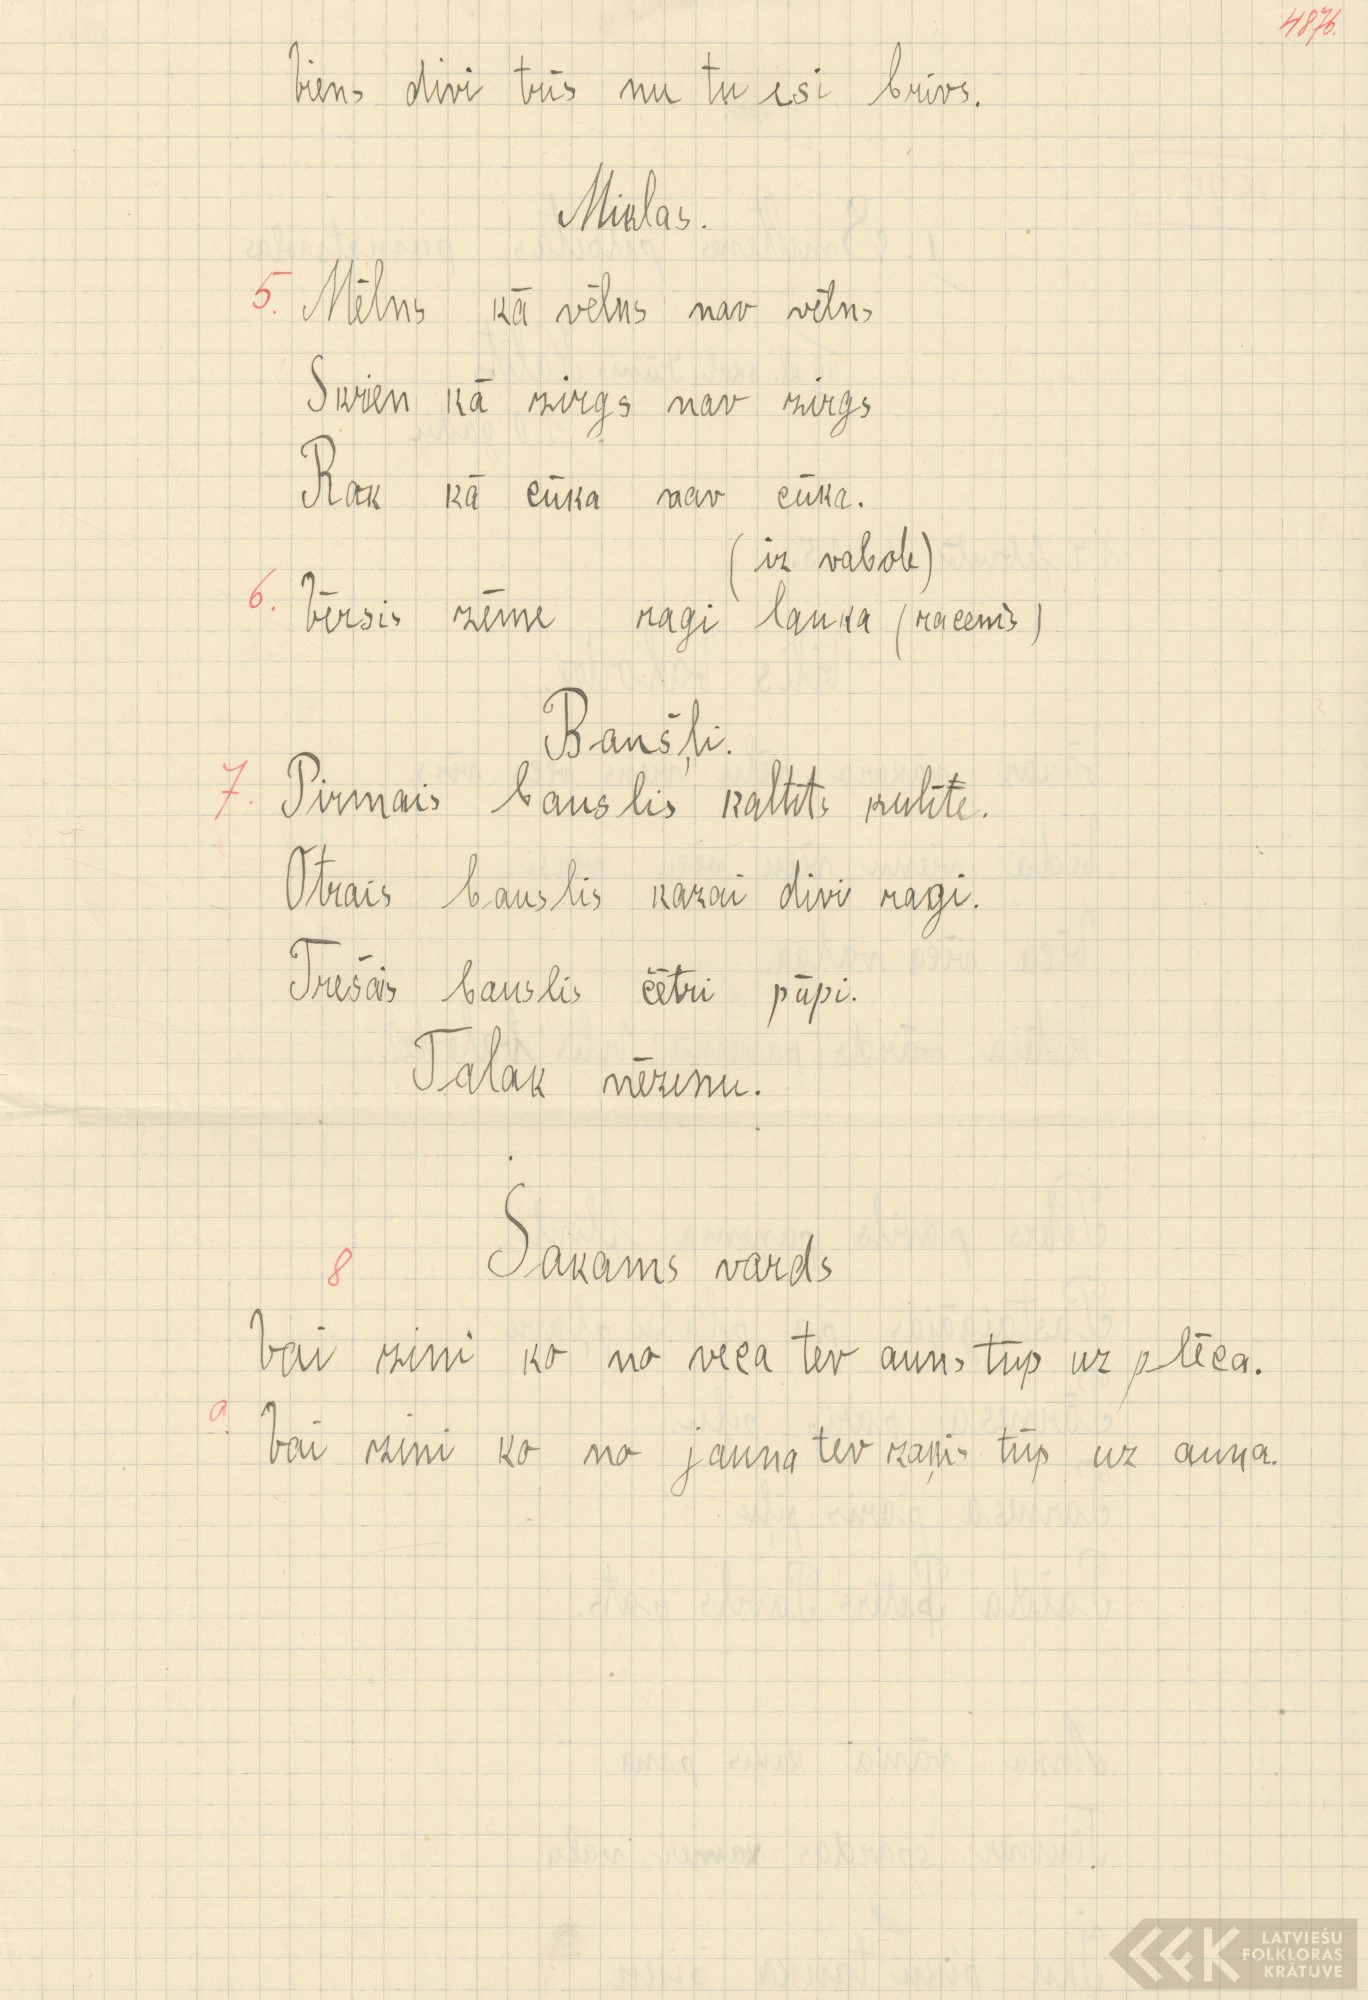 4876.
Viens divi trīs nu tu esi brīvs.
Miklas.
5. Mēlns kā vēlns nav vēlns
Skrien kā zirgs nav zirgs
Rak kā cūka nav cūka.
(iz vabole)
6. Vērsis zēme ragi lauka (racenis)
Baušļi.
7. Pirmais bauslis kaltēts kulīte.
Otrais bauslis kazai divi ragi.
Trešais bauslis čētri pūpi.
Talak nēzinu.
8 Sakams vards
Vai zini ko no veca tev auns tūp uz plēca.
9. Vai zini ko no jauna tev zaķis tūp uz auna.
LATVIEŠU
FOLKLORAS
KRĀTUVE